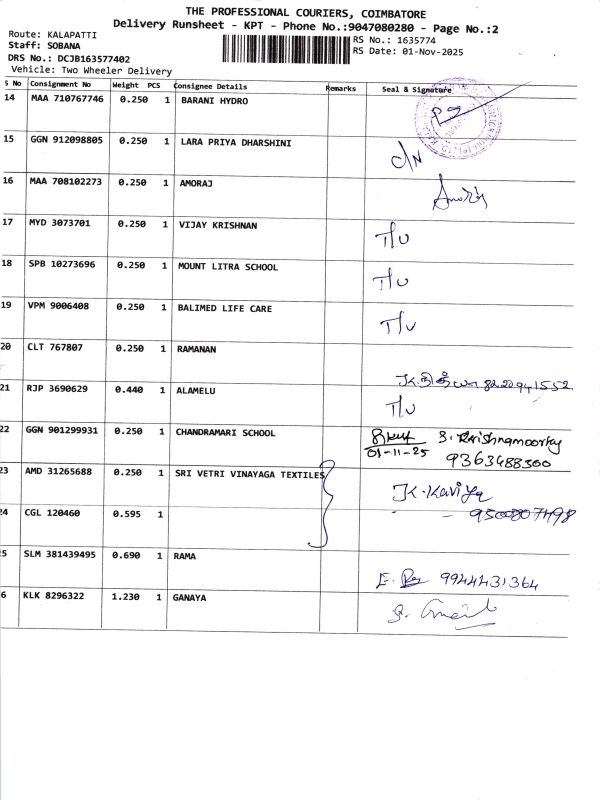 THE PROFESSIONAL COURIERS, COIMBATORE
Delivery Runsheet - KPT - Phone No.:9047080280 - Page No.:2
Route: KALAPATTI
Staff: SOBANA
DRS No.: DCJB163577402
Vehicle: Two Wheeler Delivery
RS No.: 1635774
RS Date: 01-Nov-2025
S No Consignment No Weight PCS Consignee Details Remarks Seal & Signature
14 MAA 710767746 0.250 1 BARANI HYDRO
15 GGN 912098805 0.250 1 LARA PRIYA DHARSHINI D/N
16 MAA 708102273 0.250 1 AMORAJ
17 MYD 3073701 0.250 1 VIJAY KRISHNAN T/U
18 SPB 10273696 0.250 1 MOUNT LITRA SCHOOL T/U
19 VPM 9006408 0.250 1 BALIMED LIFE CARE T/U
20 CLT 767807 0.250 1 RAMANAN
21 RJP 3690629 0.440 1 ALAMELU T/U
22 GGN 901299931 0.250 1 CHANDRAMARI SCHOOL S. Krishnamoorthy
01-11-25 9363488500
23 AMD 31265688 0.250 1 SRI VETRI VINAYAGA TEXTILES K. Kaviya
24 CGL 120460 0.595 1
5 SLM 381439495 0.690 1 RAMA E. 9944431364
6 KLK 8296322 1.230 1 GANAYA